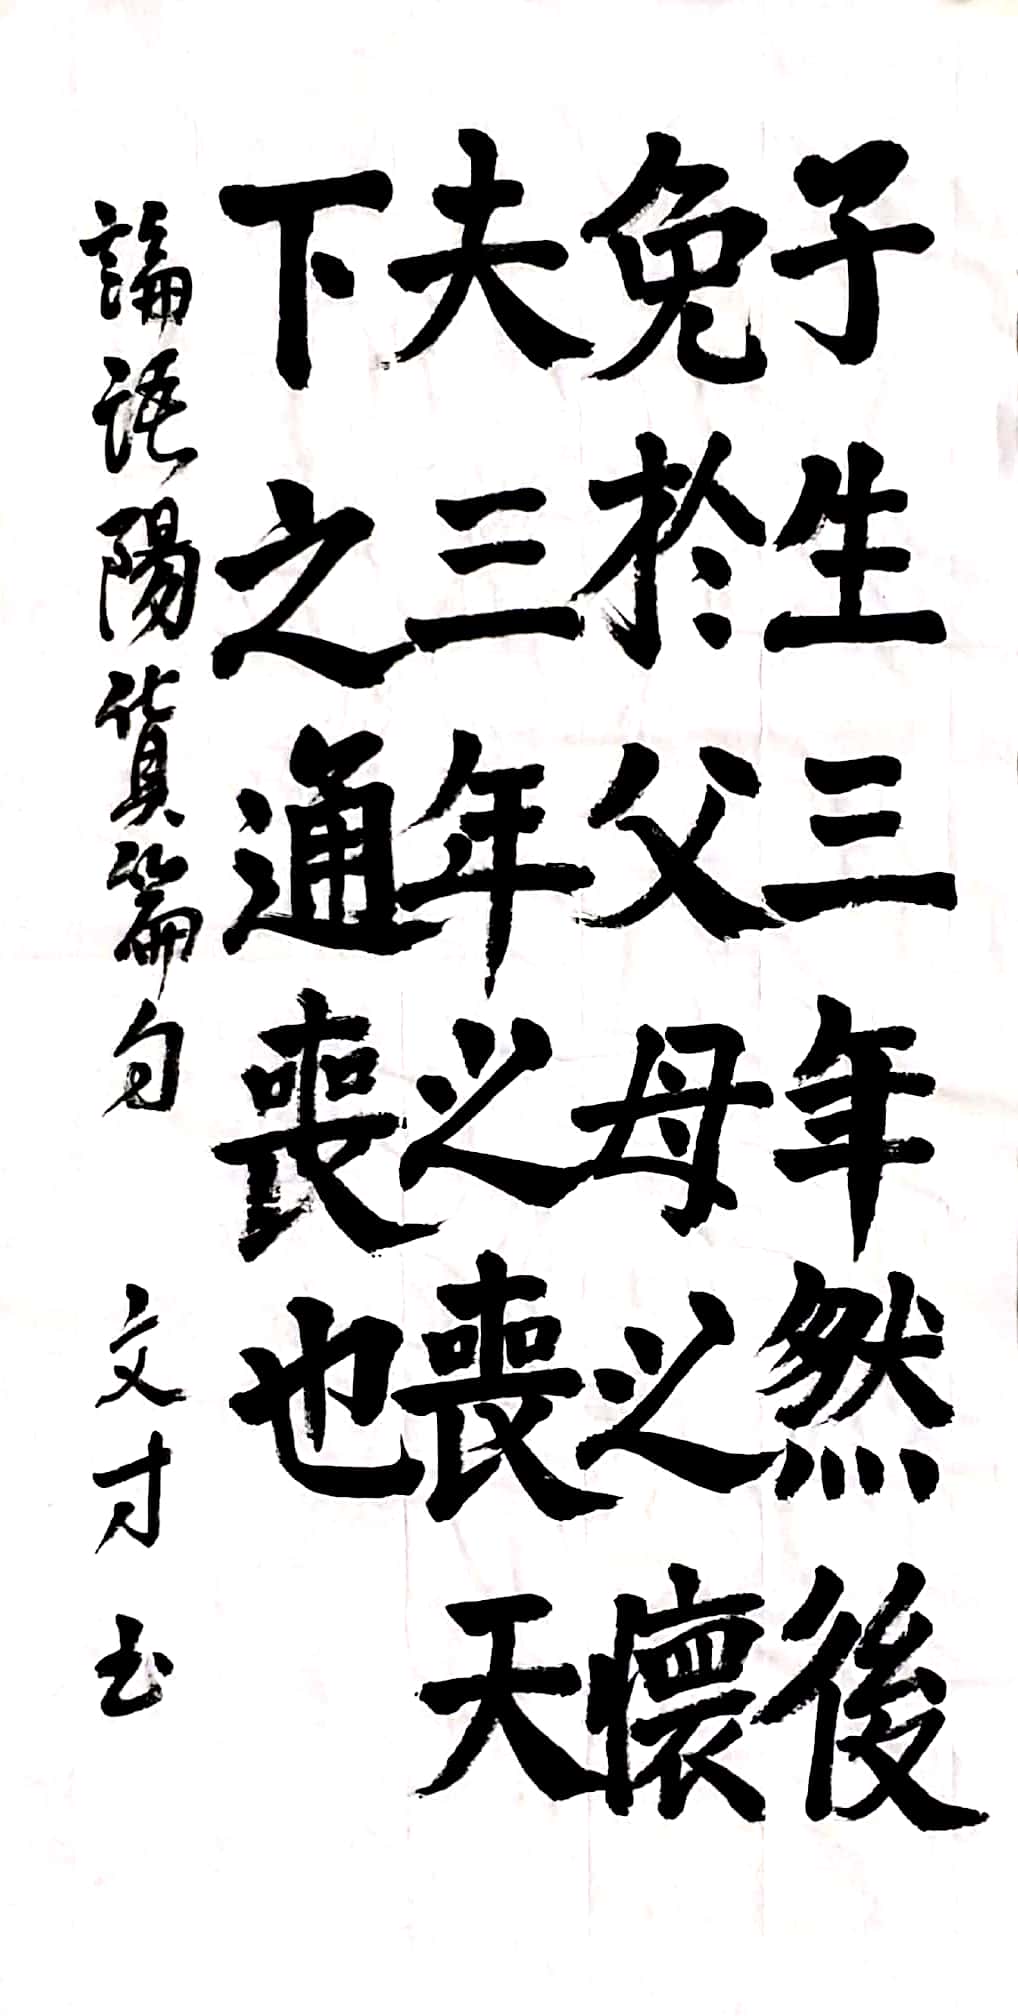 子生三年然後
免於父母之懷
夫三年之喪天
下之通喪也
論語陽貨篇句 文才书